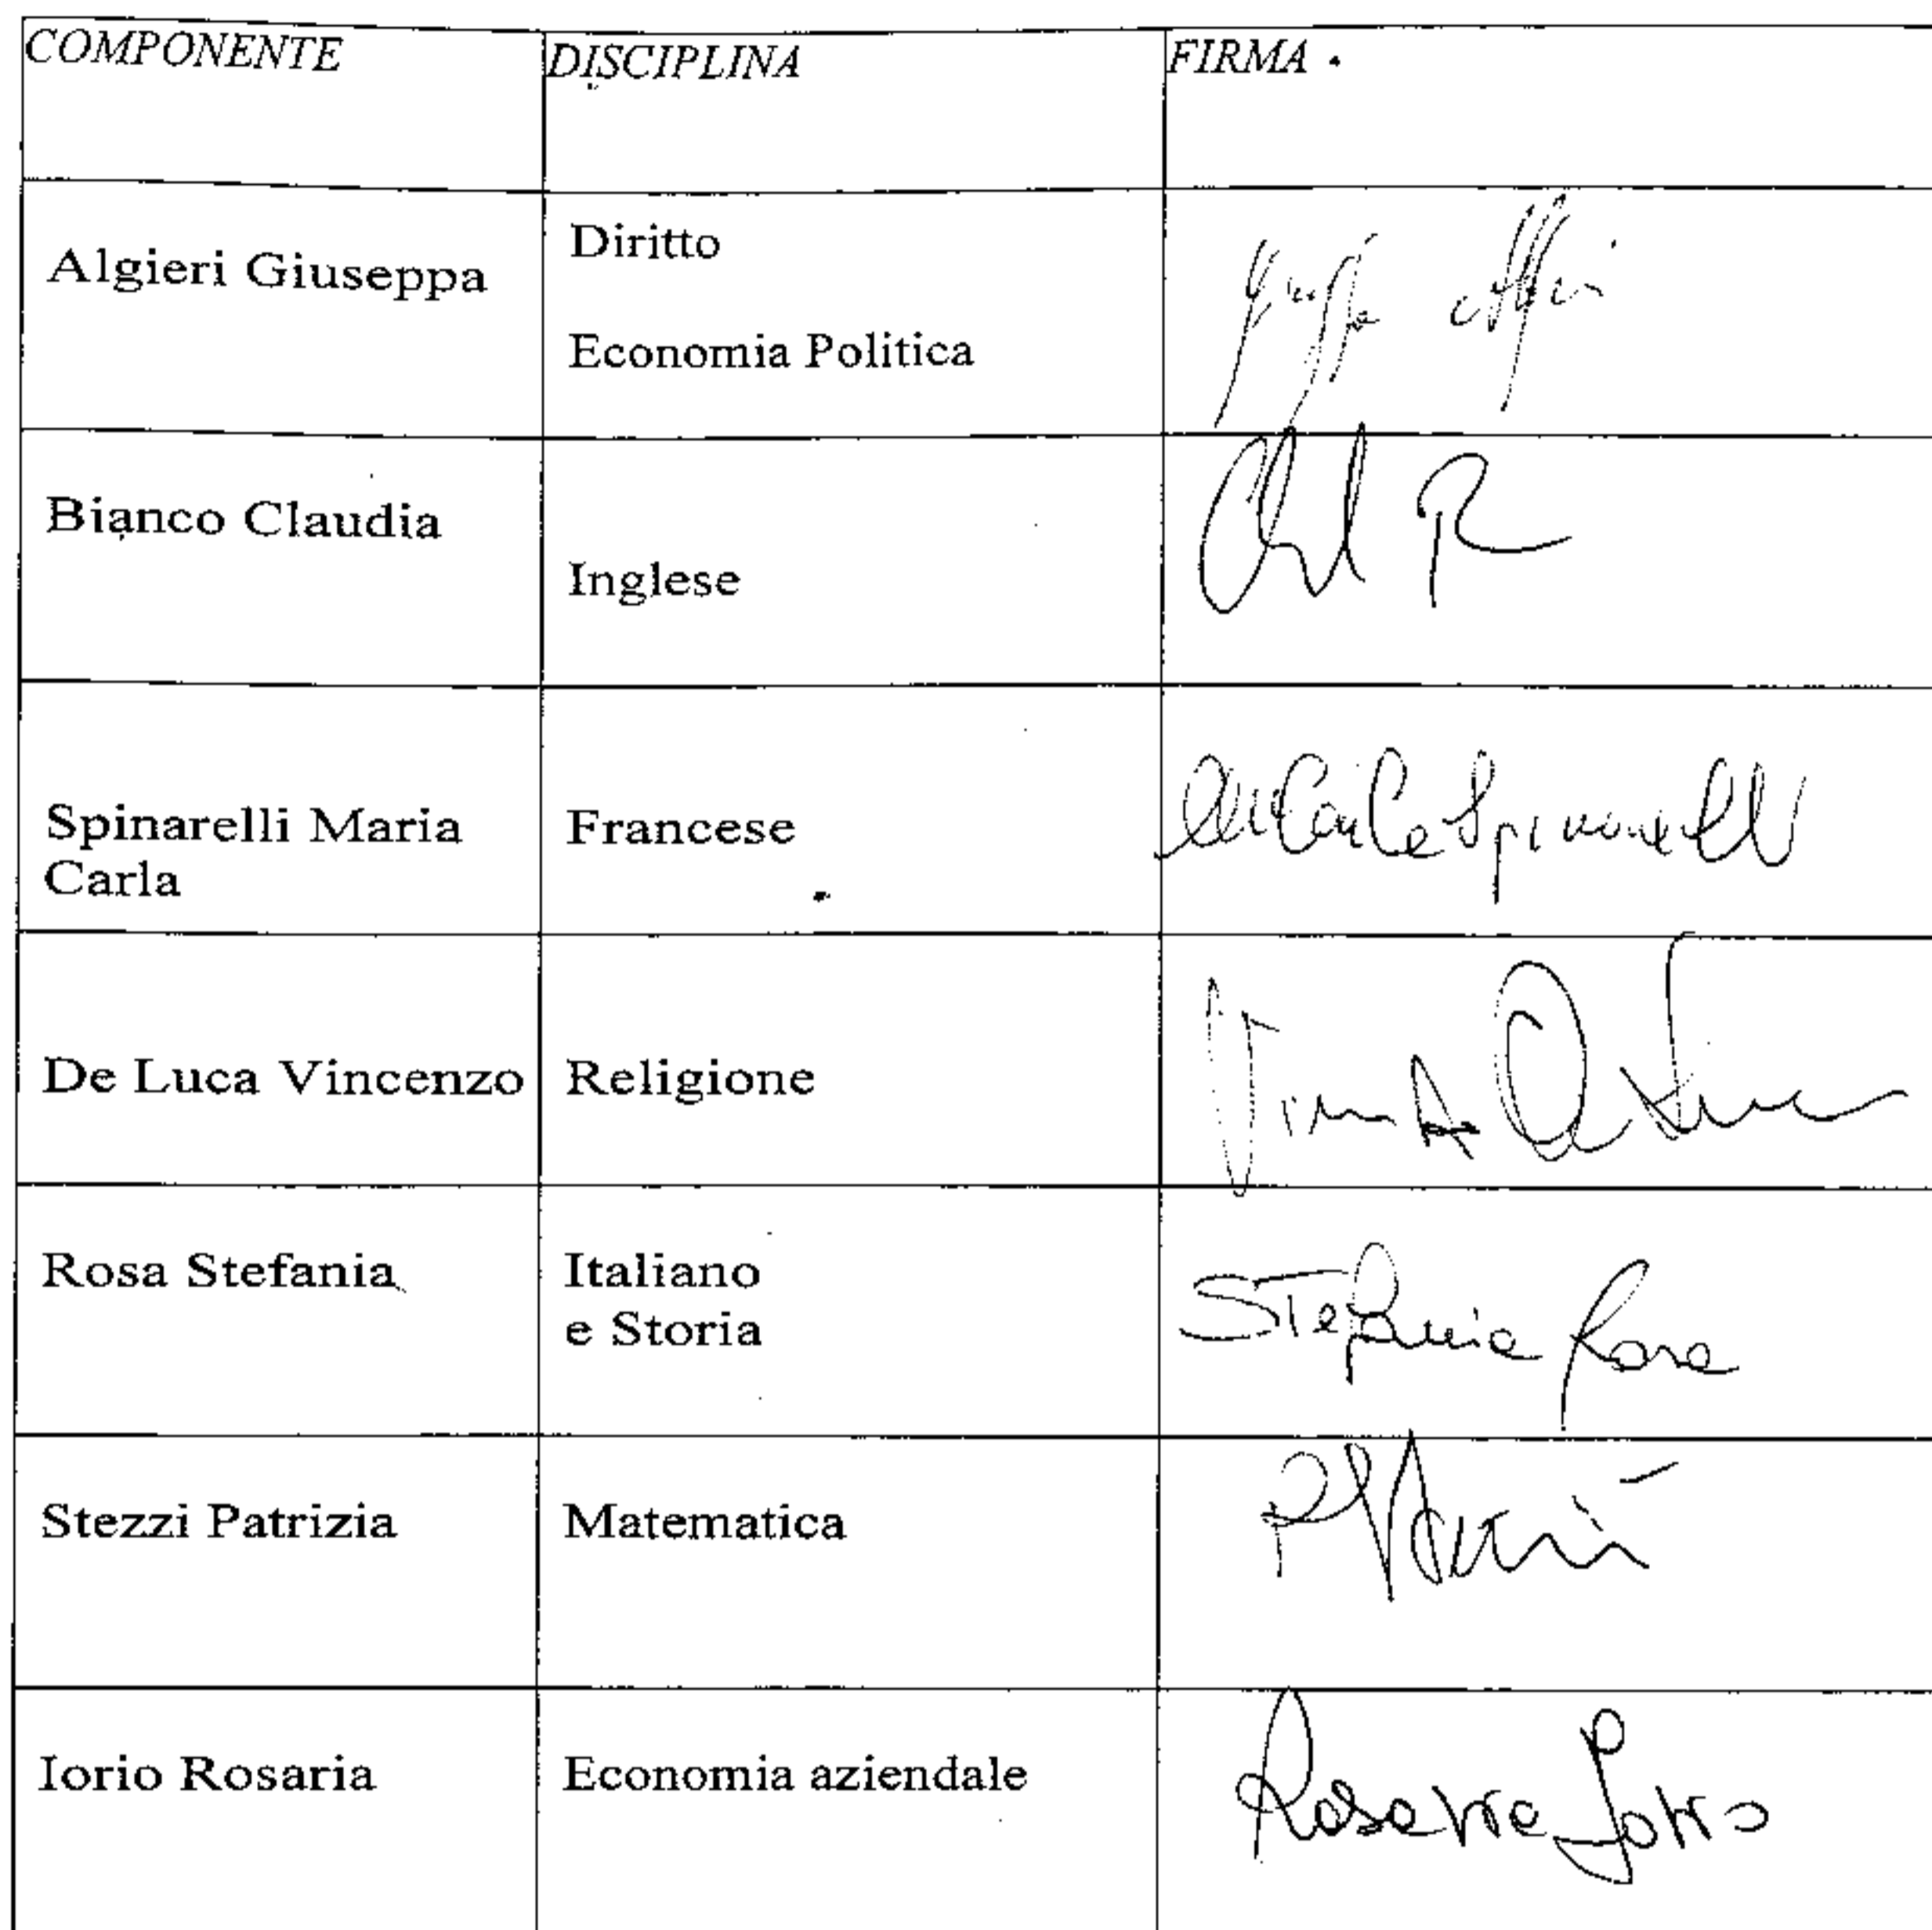 COMPONENTE DISCIPLINA FIRMA
Algieri Giuseppa
Diritto
Economia Politica
Bianco Claudia
Inglese
Spinarelli Maria
Carla
Francese
De Luca Vincenzo
Religione
Rosa Stefania
Italiano
e Storia
Stefania Rosa
Stezzi Patrizia
Matematica
Iorio Rosaria
Economia aziendale
Rosaria Iorio